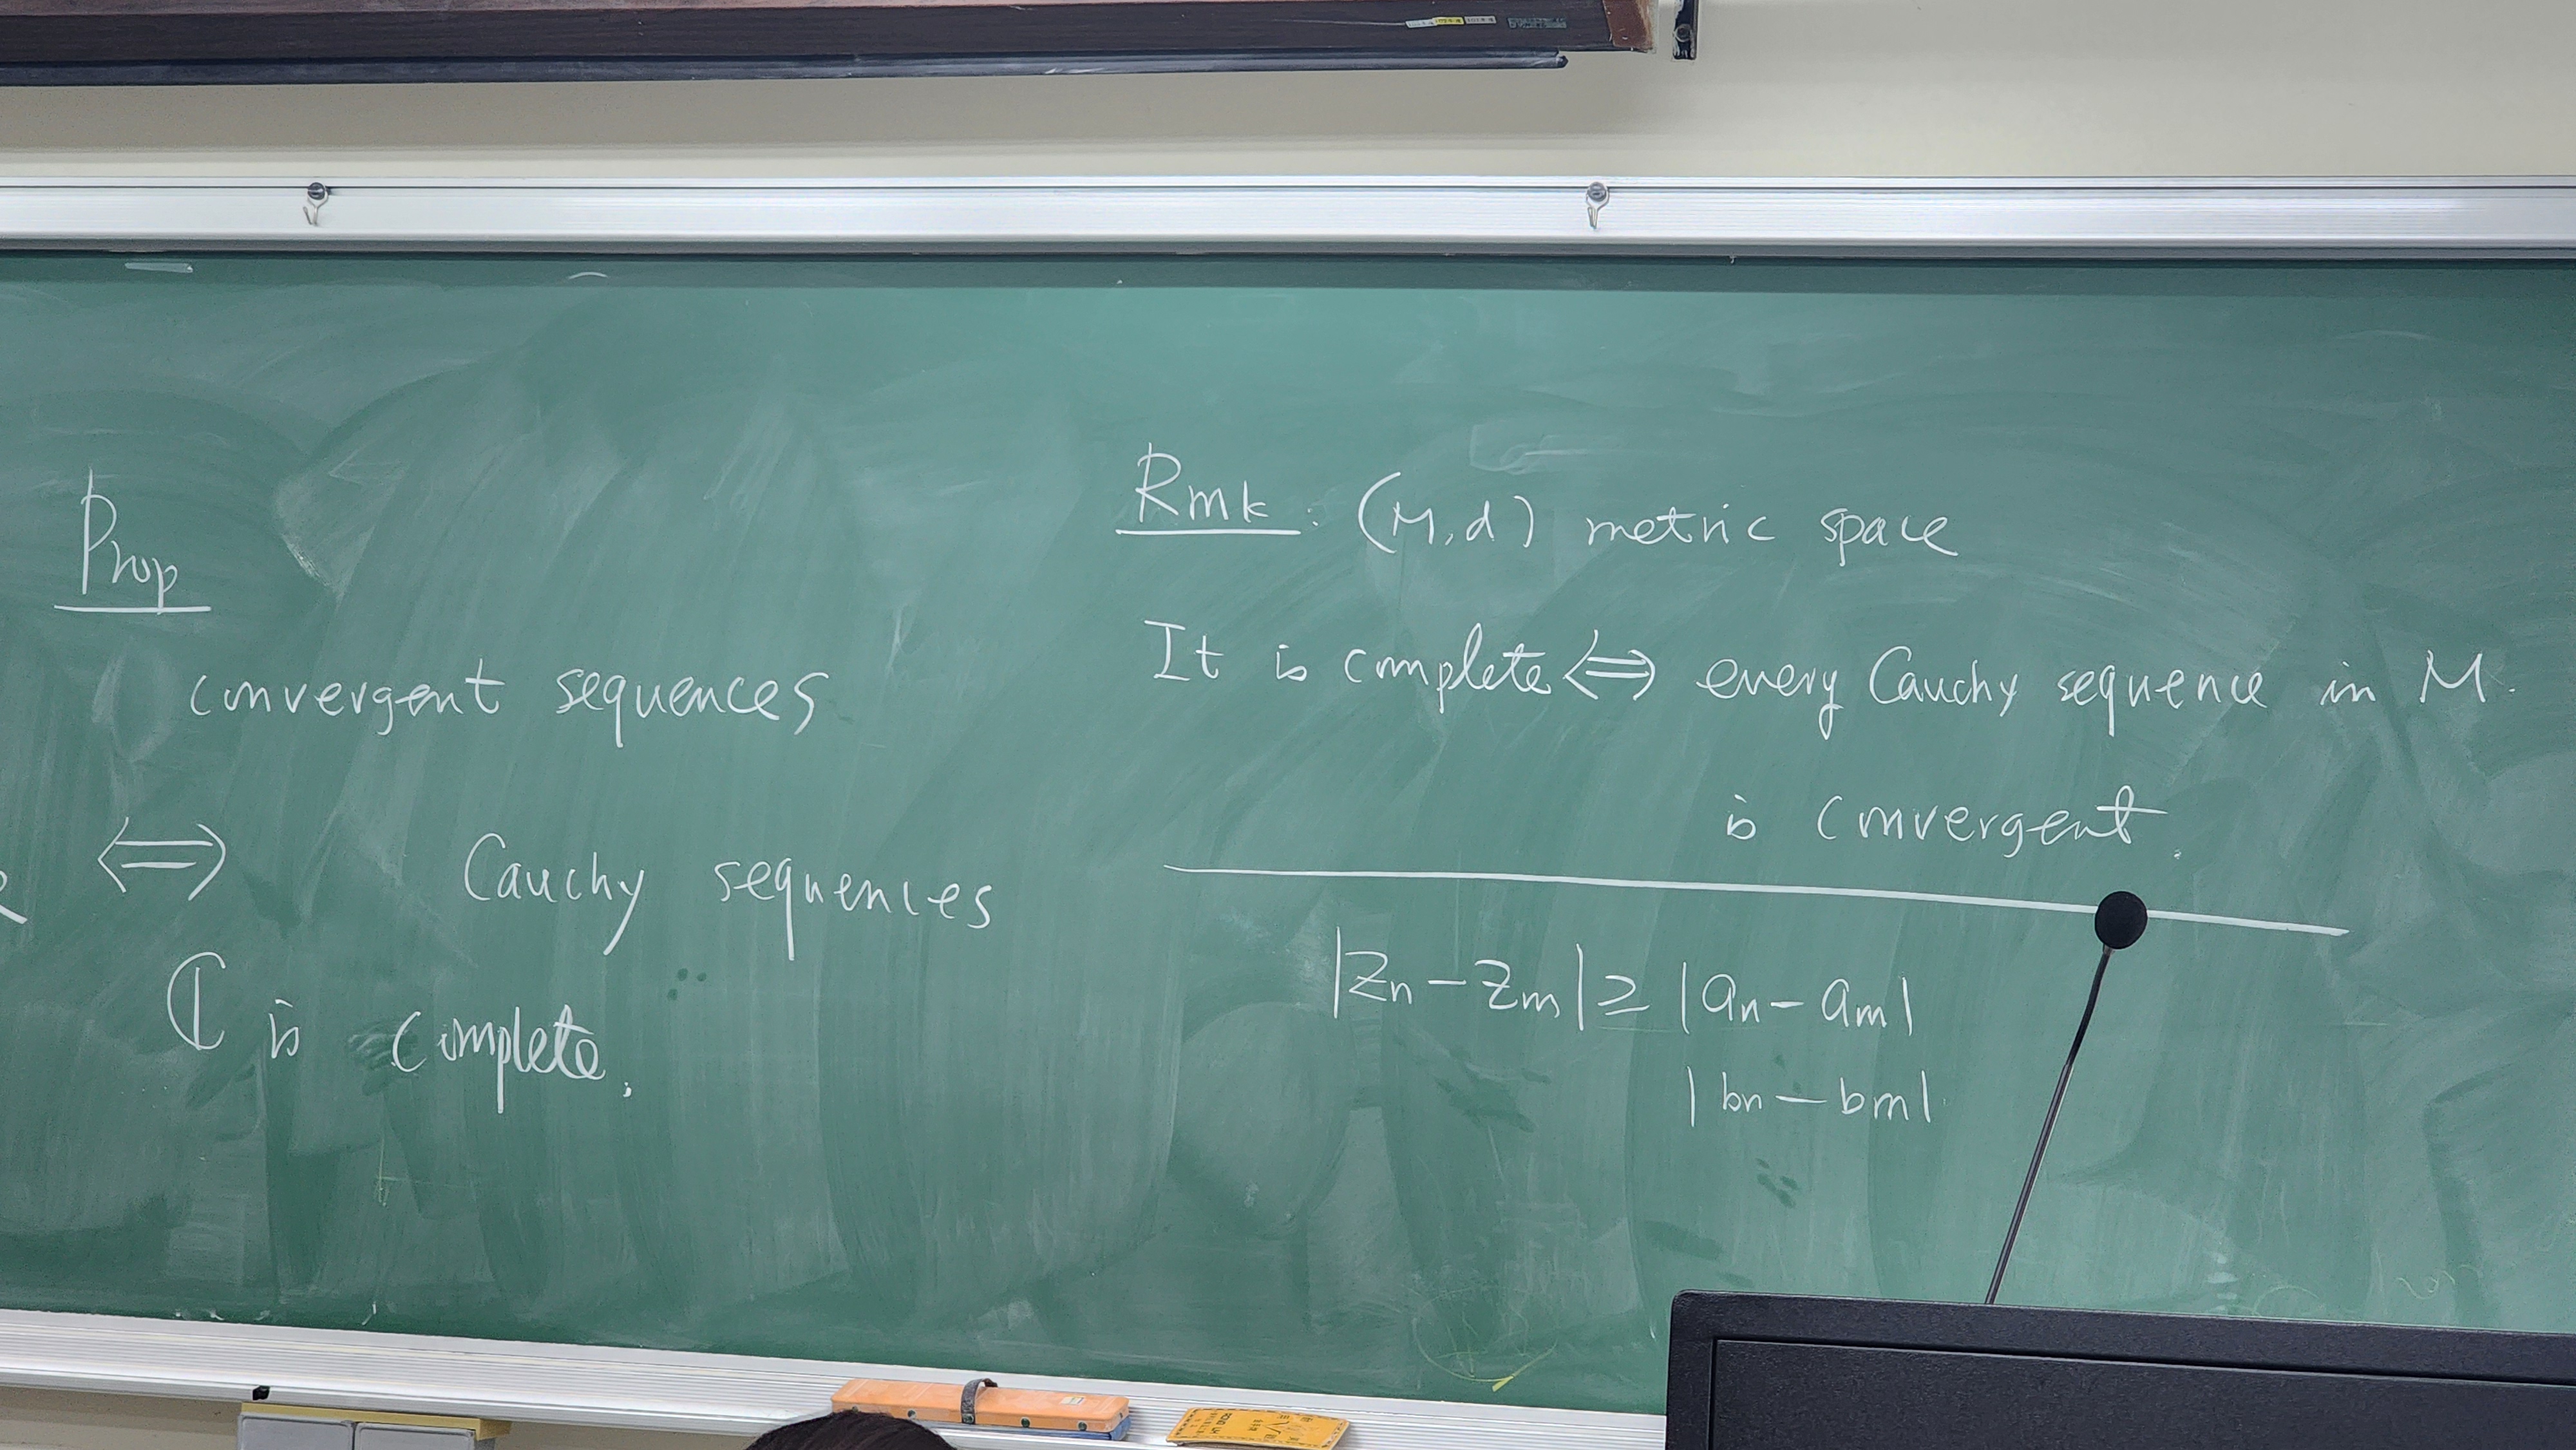 Prop
convergent sequences
⟺ Cauchy sequences
ℂ is complete.
Rmk: (M,d) metric space
It is complete ⟺ every Cauchy sequence in M.
is convergent.
|Zn - Zm| ≥ |an - am|
|bn - bm|